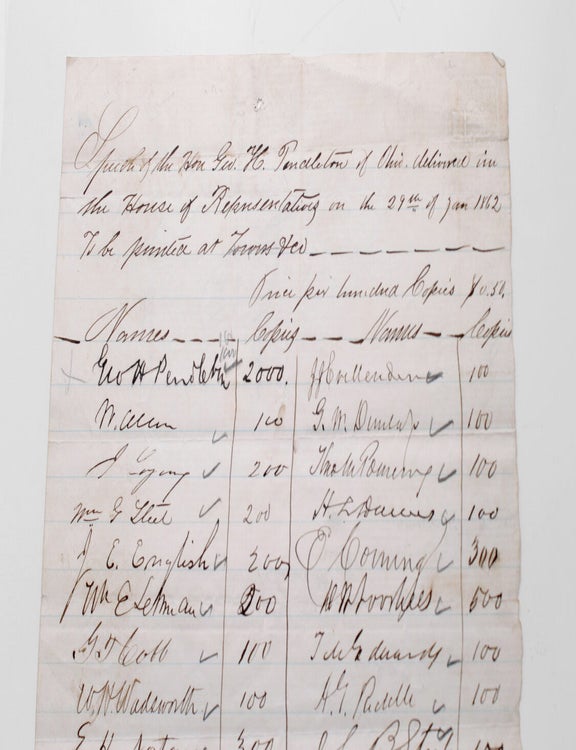 Speech of the Hon Geo. H. Pendleton of Ohio. delivered in
the House of Representatives on the 29th of Jan 1862
To be printed at Towers &co
Price per hundred Copies $0.50.
Names Copies Names Copies
Geo H Pendleton 2000. J J Crittenden 100
W. Allen 100 G. W. Dunlap 100
200 100
Wm G Steel 200 100
J E. English 200 E Corning 300
Wm E Lehman 200 D W Voorhees 500
G T Cobb 100 Edwards 100
W. H Wadsworth 100 100
300